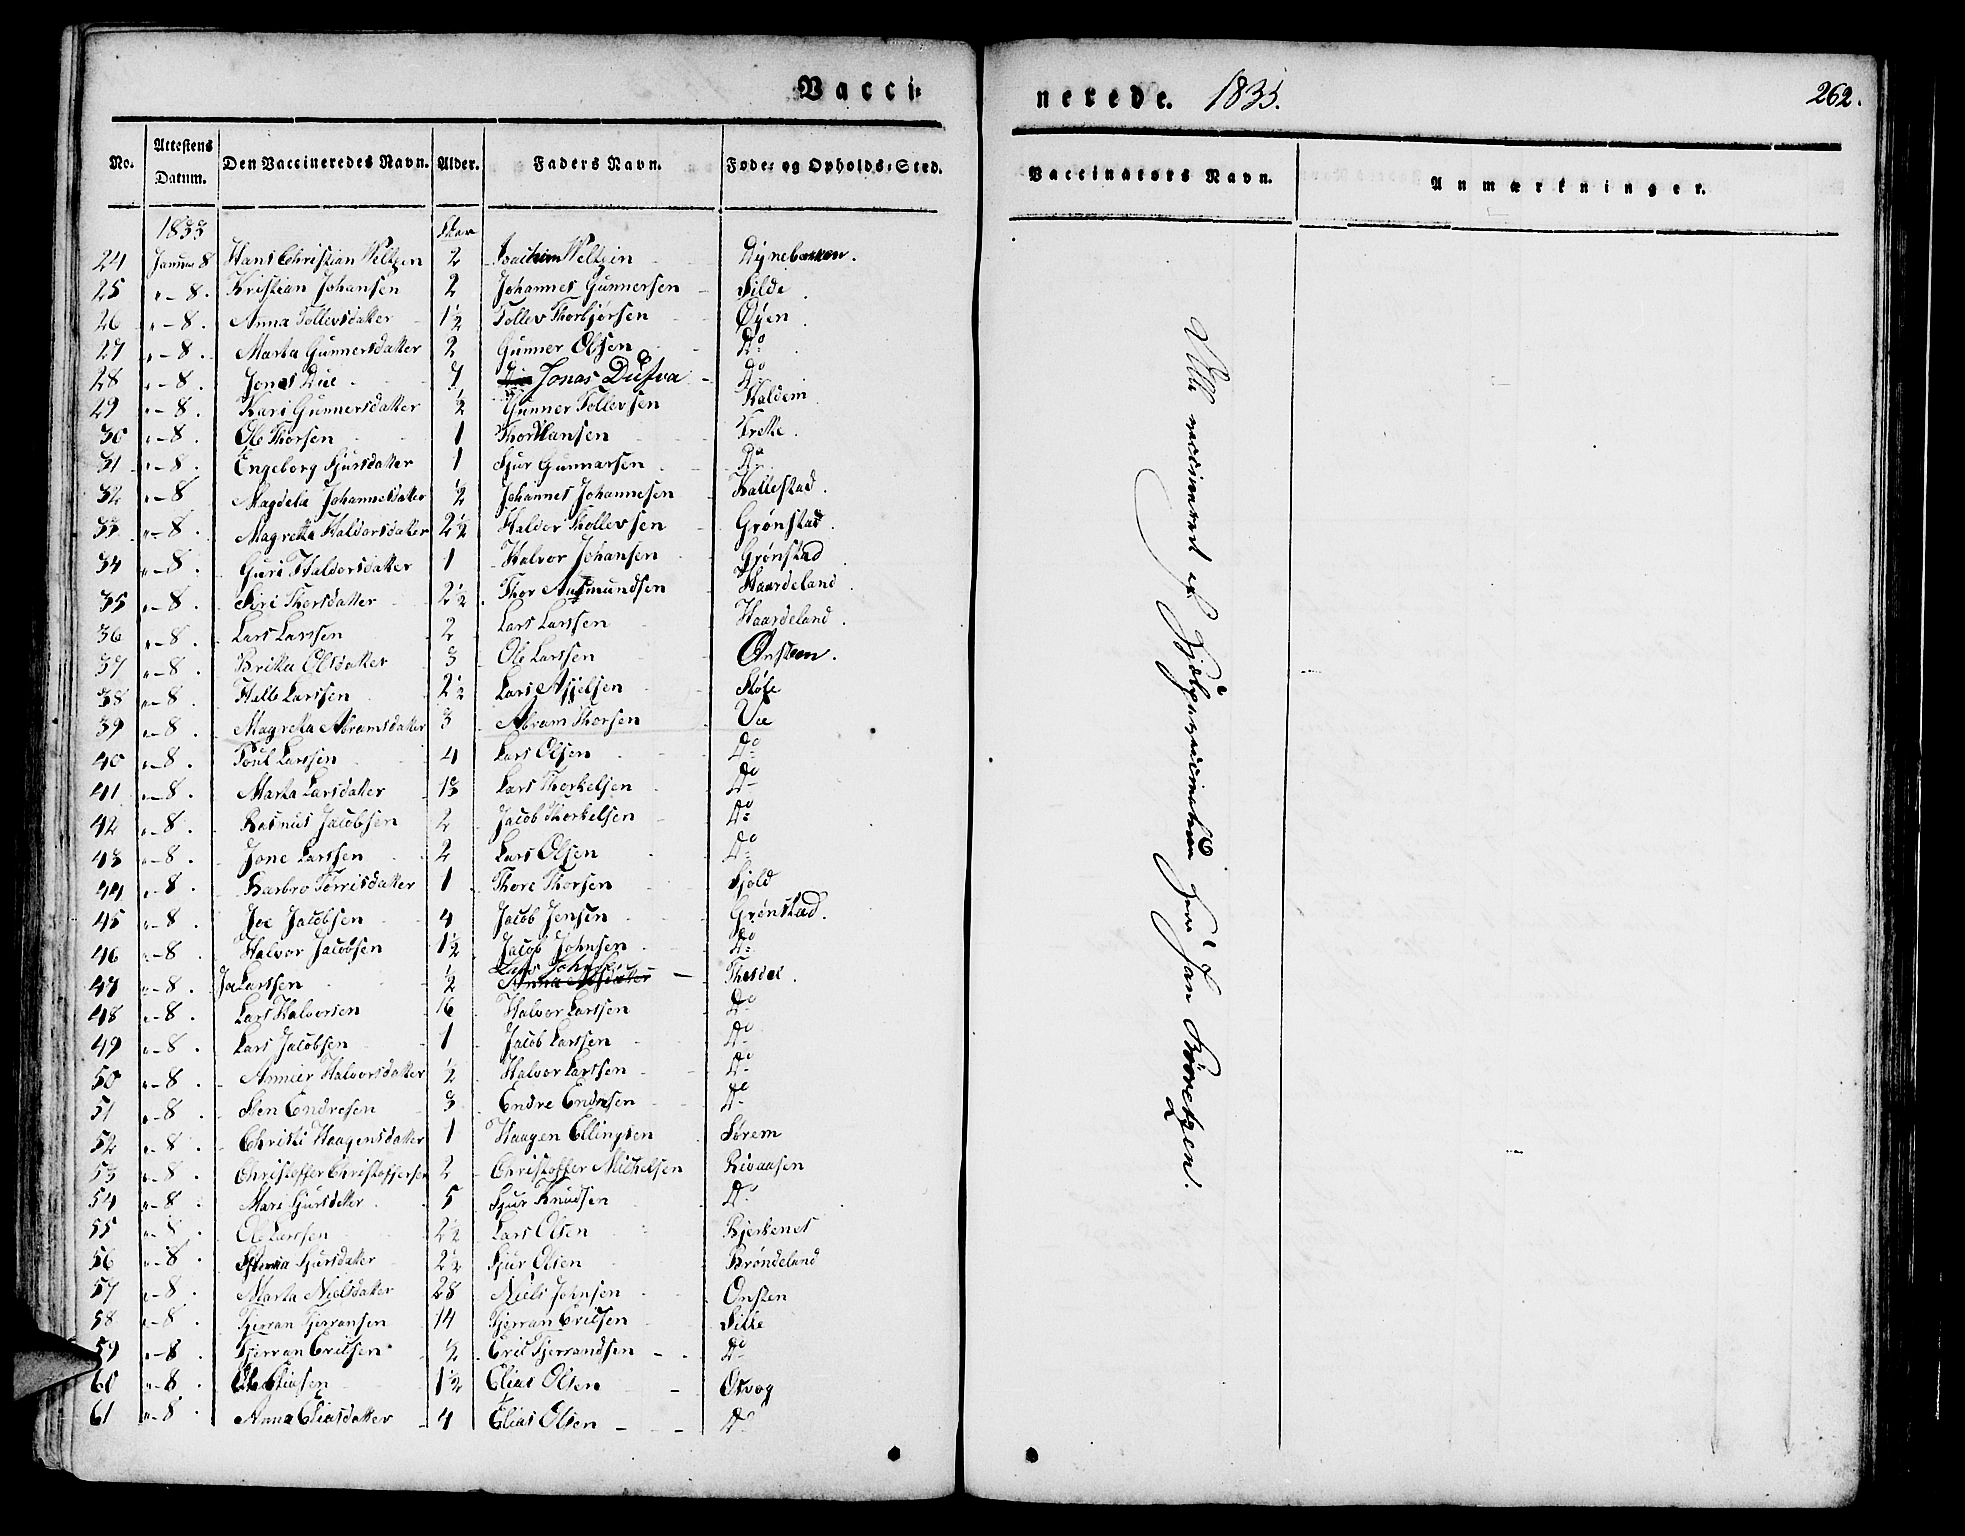 Vacci-
nerede. 1833.
262.
No. Attestens Datum. Den Vaccineredes Navn. Alder. Faders Navn. Føde- og Opholds-Sted. Vaccinators Navn. Anmærkninger.
1833
24 Januar 8 Hans Christian Weltzen 2 Joachim Weltzin
25 " - 8. Kristian Johansen 2 Johannes Gunnersen - Silde
26 " - 8. Anna Tollevsdatter 1½ Tollev Thorbjørsen Øyen
27 " - 8. Marta Gunnersdatter 2 Gunner Olsen Do
28 " - 8. Jonas Due 7 Jonas Dufva - Do
29 " - 8. Kari Gunnersdatter ½ Gunner Tollevsen Haldem
30 " - 8. Ole Thorsen 1 Thor Hansen Frette.
31 " - 8. Engeborg Sjursdatter 1 Sjur Gunnarsen Do
32 " - 8 Magdela Johannesdatter ½ Johannes Johannesen Kallestad.
33 " - 8. Magretta Haldorsdatter 2½ Haldor Thollevsen Grønstad.
34 " - 8. Guri Haldorsdatter 1 Halvor Johansen Grønstad
35 " - 8. Siri Thorsdatter 2½ Thor Aasmundsen Haardeland
36 " - 8. Lars Larssen 2 Lars Larssen Haardeland.
37 " - 8. Britta Olsdatter 3 Ole Larssen Onsteen.
38 " - 8 Helle Larssen 2½ Lars Asjelsen Støle
39 " - 8. Magretta Abramsdatter 3 Abram Thorsen Vee
40 " - 8. Poul Larssen 4 Lars Olsen Do
41 " - 8. Marta Larsdatter 13 Lars Thorkelsen Do
42 " - 8. Rasmus Jacobsen 2 Jacob Thorkelsen Do
43 " - 8. Jone Larssen 2 Lars Olsen Do
44 " - 8. Barbro Torrisdatter 1 Thore Thorsen Sjold
45 " - 8. Joe Jacobsen 4 Jacob Jensen Grønstad.
46 " - 8. Halvor Jacobsen 1½ Jacob Johnsen Do
47 " - 8. Joe Larssen ½ Lars Johnsen - Thesdal.
48 " - 8. Lars Halvorsen 16 Halvor Larssen Do
49 " - 8. Lars Jacobsen 1 Jacob Larssen Do
50 " - 8. Annier Halvorsdatter ½ Halvor Larssen Do
51 " - 8. Sten Endresen 3 Endre Endresen Do
52 " - 8. Christi Haagensdatter 1 Haagen Ellingsen Sørem
53 " - 8. Christoffer Christoffersen 2 Christoffer Michelsen Rivaasen
54 " - 8. Mari Sjursdatter 5 Sjur Knudsen Do
55 " - 8. Ole Larssen 2½ Lars Olsen Bjerkenes
56 " - 8. Sjursdatter 2½ Sjur Olsen Brøndeland
57 " - 8. Marta Nielsdatter 28 Niels Johnsen Onsten
58 " - 8. Tjerran Tjerransen 14 Tjerran Ericsen Silke
59 " - 8. Tjerran Ericsen ½ Eric Tjerrandsen - Do
60 " - 8. Ole Eliasen 1½ Elias Olsen - Osvog
61 " - 8. Anna Eliasdatter 4 Elias Olsen - Do
Alle vaccineret af Hjelpevaccinateur Herr Jan Køretzen.